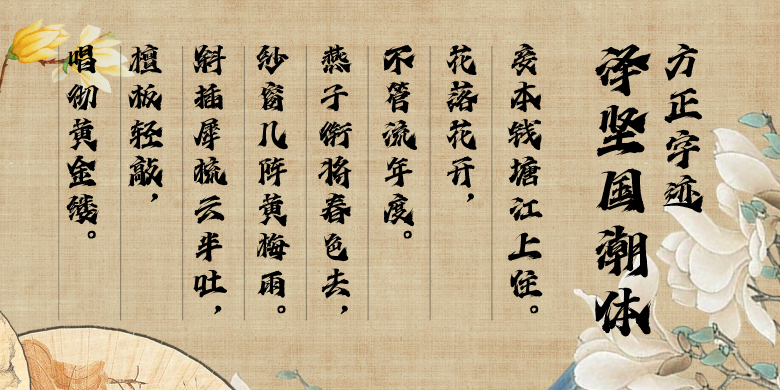 方正字迹
泽坚国潮体
妾本钱塘江上住。
花落花开，
不管流年度。
燕子衔将春色去，
纱窗几阵黄梅雨。
斜插犀梳云半吐，
檀板轻敲，
唱彻黄金缕。